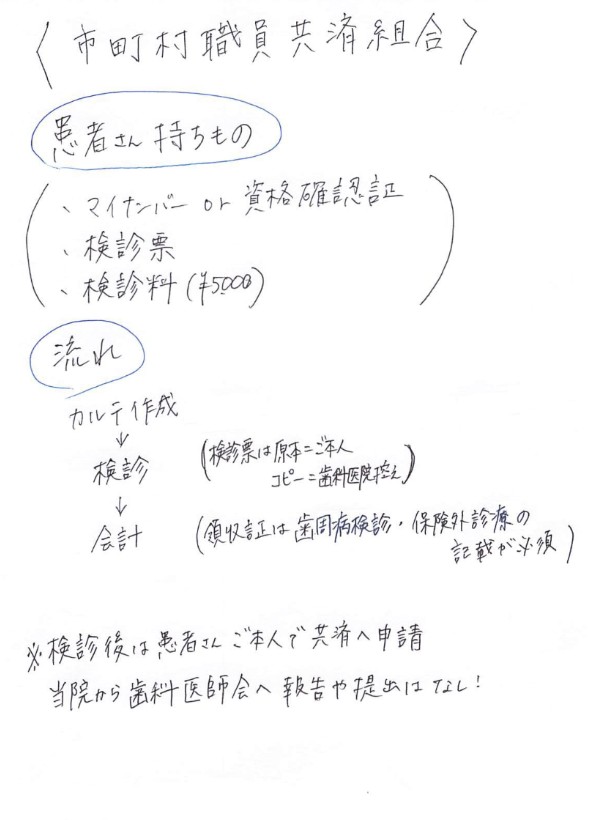 〈市町村職員共済組合〉
患者さん持ちもの
、マイナンバー or 資格確認証
、検診票
、検診料(¥5000)
流れ
カルテ作成
↓
検診 (検診票は原本=ご本人
コピー=歯科医院控え)
↓
会計 (領収証は歯周病検診・保険外診療の
記載が必須)
※検診後は患者さんご本人で共済へ申請
当院から歯科医師会へ報告や提出はなし!